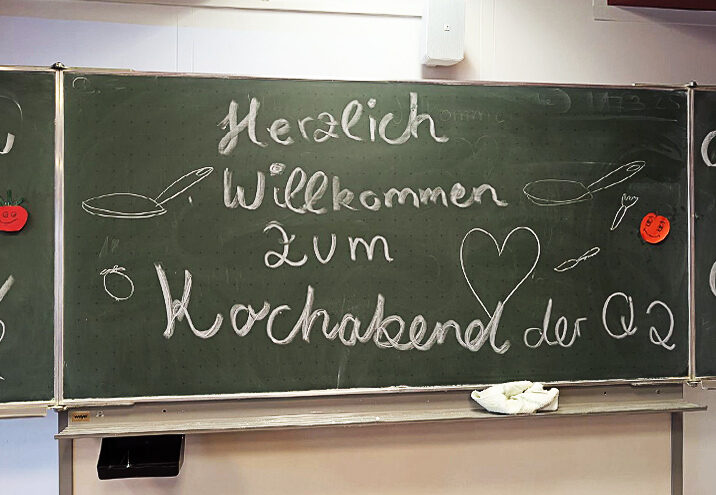 Herzlich
Willkommen
zum
Kochabend der Q2